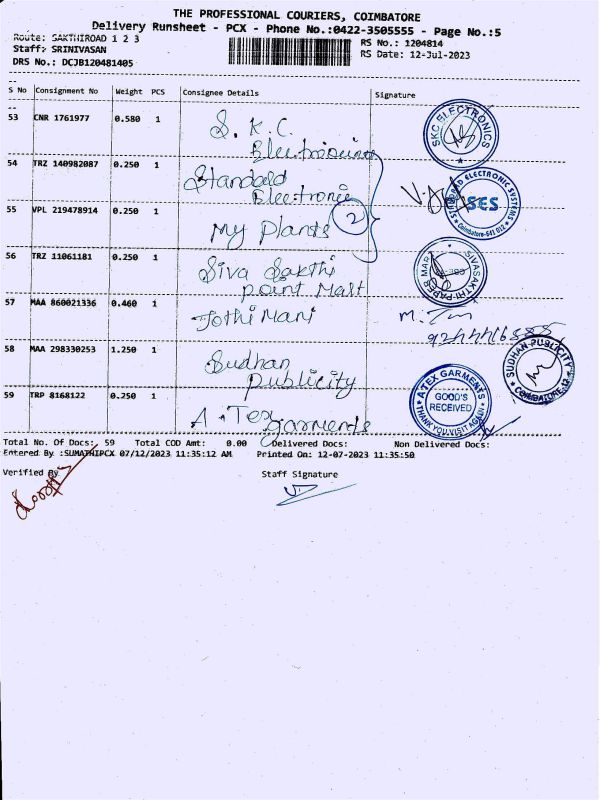 THE PROFESSIONAL COURIERS, COIMBATORE
Delivery Runsheet - PCX - Phone No.:0422-3505555 - Page No.:5
Route: SAKTHIROAD 1 2 3
RS No.: 1204814
Staff: SRINIVASAN
RS Date: 12-Jul-2023
DRS No.: DCJB120481405
S No Consignment No Weight PCS Consignee Details Signature
53 CNR 1761977 0.580 1 S. K. C.
SKC ELECTRONICS
54 TRZ 140982087 0.250 1 Standald
Electronic
ELECTRONIC SYSTEMS
SES
Coimbatore-641 012
55 VPL 219478914 0.250 1 My Plants
2
56 TRZ 11061181 0.250 1 Siva Sakthi
point Mast
SIVASAKTHI-PAPER MART
57 MAA 860021336 0.460 1 JothiMani
58 MAA 298330253 1.250 1 Sudhan
publicity
SUDHAN PUBLICITY
COIMBATORE-12
59 TRP 8168122 0.250 1 A. Tex
garments
A TEX GARMENTS
GOOD'S
RECEIVED
THANK YOU VISIT AGAIN
Total No. Of Docs: 59 Total COD Amt: 0.00 Delivered Docs: Non Delivered Docs:
Entered By :SUMATHIPCX 07/12/2023 11:35:12 AM Printed On: 12-07-2023 11:35:50
Verified By Staff Signature